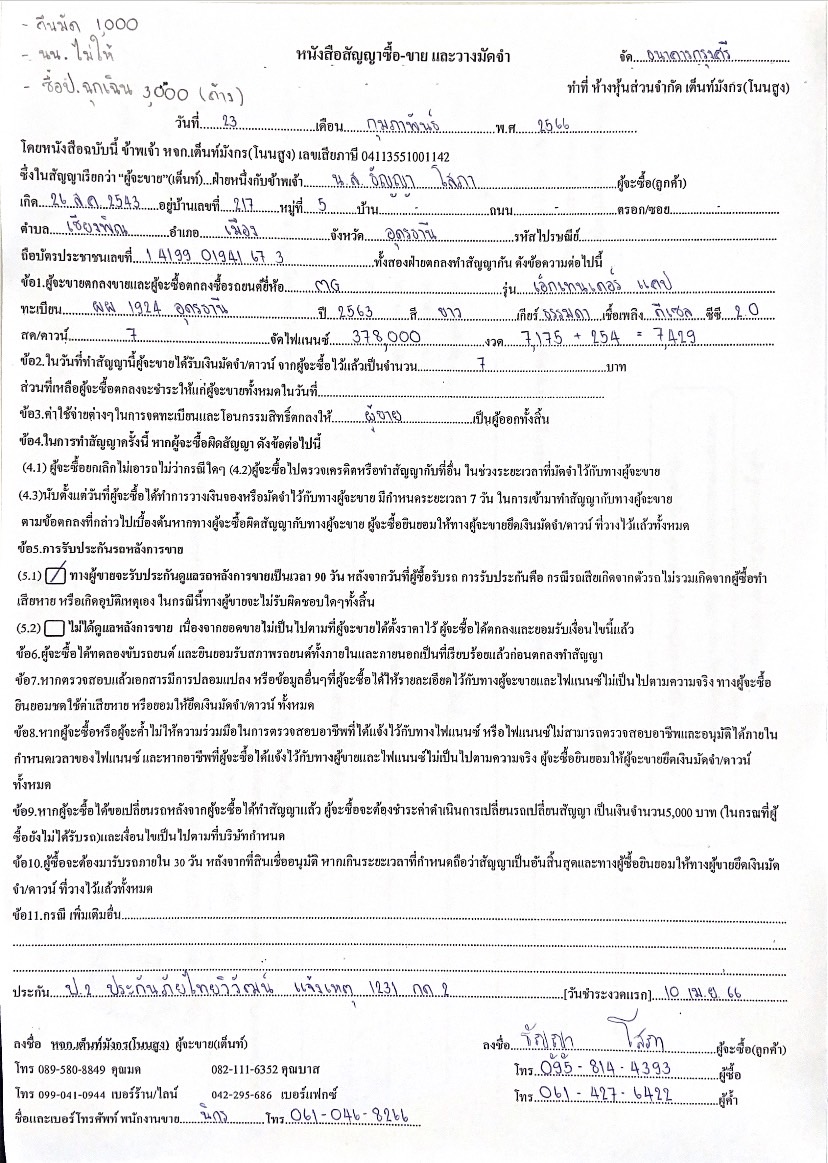 - คืนมัด 1,000
- นน. ไม่ให้
- ซื้อป.ฉุกเฉิน 3,000 (ค้าง)
หนังสือสัญญาซื้อ-ขาย และวางมัดจำ
จัด ธนาคารกรุงศรี
ทำที่ ห้างหุ้นส่วนจำกัด เต็นท์มังกร(โนนสูง)
วันที่ 23 เดือน กุมภาพันธ์ พ.ศ 2566
โดยหนังสือฉบับนี้ ข้าพเจ้า หจก.เต็นท์มังกร(โนนสูง) เลขเสียภาษี 04113551001142
ซึ่งในสัญญาเรียกว่า "ผู้จะขาย"(เต็นท์)...ฝ่ายหนึ่งกับข้าพเจ้า น.ส. ธัญญา โสภา ผู้จะซื้อ(ลูกค้า)
เกิด 26 ส.ค. 2543 อยู่บ้านเลขที่ 217 หมู่ที่ 5 บ้าน - ถนน - ตรอก/ซอย
ตำบล เชียงพิณ อำเภอ เมือง จังหวัด อุดรธานี รหัสไปรษณีย์
ถือบัตรประชาชนเลขที่ 1 4199 01941 67 3 ทั้งสองฝ่ายตกลงทำสัญญากัน ดังข้อความต่อไปนี้
ข้อ1.ผู้จะขายตกลงขายและผู้จะซื้อตกลงซื้อรถยนต์ยี่ห้อ MG รุ่น เอ็กเทนเดอร์ แคป
ทะเบียน ผผ 1924 อุดรธานี ปี 2563 สี ขาว เกียร์ ธรรมดา เชื้อเพลิง ดีเซล ซีซี 2.0
สด/ดาวน์ 7 จัดไฟแนนซ์ 378,000 งวด 7,175 + 254 = 7,429
ข้อ2.ในวันที่ทำสัญญานี้ผู้จะขายได้รับเงินมัดจำ/ดาวน์ จากผู้จะซื้อไว้แล้วเป็นจำนวน 7 บาท
ส่วนที่เหลือผู้จะซื้อตกลงจะชำระให้แก่ผู้จะขายทั้งหมดในวันที่
ข้อ3.ค่าใช้จ่ายต่างๆในการจดทะเบียนและโอนกรรมสิทธิ์ตกลงให้ ผู้ขาย เป็นผู้ออกทั้งสิ้น
ข้อ4.ในการทำสัญญาครั้งนี้ หากผู้จะซื้อผิดสัญญา ดังข้อต่อไปนี้
(4.1) ผู้จะซื้อยกเลิกไม่เอารถไม่ว่ากรณีใดๆ (4.2)ผู้จะซื้อไปตรวจเครดิตหรือทำสัญญากับที่อื่น ในช่วงระยะเวลาที่มัดจำไว้กับทางผู้จะขาย
(4.3)นับตั้งแต่วันที่ผู้จะซื้อได้ทำการวางเงินจองหรือมัดจำไว้กับทางผู้จะขาย มีกำหนดระยะเวลา 7 วัน ในการเข้ามาทำสัญญากับทางผู้จะขาย
ตามข้อตกลงที่กล่าวไปเบื้องต้นหากทางผู้จะซื้อผิดสัญญากับทางผู้จะขาย ผู้จะซื้อยินยอมให้ทางผู้จะขายยึดเงินมัดจำ/ดาวน์ ที่วางไว้แล้วทั้งหมด
ข้อ5.การรับประกันรถหลังการขาย
(5.1) ทางผู้ขายจะรับประกันดูแลรถหลังการขายเป็นเวลา 90 วัน หลังจากวันที่ผู้ซื้อรับรถ การรับประกันคือ กรณีรถเสียเกิดจากตัวรถไม่รวมเกิดจากผู้ซื้อทำ
เสียหาย หรือเกิดอุบัติเหตุเอง ในกรณีนี้ทางผู้ขายจะไม่รับผิดชอบใดๆทั้งสิ้น
(5.2) ไม่ได้ดูแลหลังการขาย เนื่องจากยอดขายไม่เป็นไปตามที่ผู้จะขายได้ตั้งราคาไว้ ผู้จะซื้อได้ตกลงและยอมรับเงื่อนไขนี้แล้ว
ข้อ6.ผู้จะซื้อได้ทดลองขับรถยนต์ และยินยอมรับสภาพรถยนต์ทั้งภายในและภายนอกเป็นที่เรียบร้อยแล้วก่อนตกลงทำสัญญา
ข้อ7.หากตรวจสอบแล้วเอกสารมีการปลอมแปลง หรือข้อมูลอื่นๆที่ผู้จะซื้อได้ให้รายละเอียดไว้กับทางผู้จะขายและไฟแนนซ์ไม่เป็นไปตามความจริง ทางผู้จะซื้อ
ยินยอมชดใช้ค่าเสียหาย หรือยอมให้ยึดเงินมัดจำ/ดาวน์ ทั้งหมด
ข้อ8.หากผู้จะซื้อหรือผู้จะค้ำไม่ให้ความร่วมมือในการตรวจสอบอาชีพที่ได้แจ้งไว้กับทางไฟแนนซ์ หรือไฟแนนซ์ไม่สามารถตรวจสอบอาชีพและอนุมัติได้ภายใน
กำหนดเวลาของไฟแนนซ์ และหากอาชีพที่ผู้จะซื้อได้แจ้งไว้กับทางผู้ขายและไฟแนนซ์ไม่เป็นไปตามความจริง ผู้จะซื้อยินยอมให้ผู้จะขายยึดเงินมัดจำ/ดาวน์
ทั้งหมด
ข้อ9.หากผู้จะซื้อได้ขอเปลี่ยนรถหลังจากผู้จะซื้อได้ทำสัญญาแล้ว ผู้ซื้อจะต้องชำระค่าดำเนินการเปลี่ยนรถเปลี่ยนสัญญา เป็นเงินจำนวน5,000 บาท (ในกรณที่ผู้
ซื้อยังไม่ได้รับรถ)และเงื่อนไขเป็นไปตามที่บริษัทกำหนด
ข้อ10.ผู้ซื้อจะต้องมารับรถภายใน 30 วัน หลังจากที่สินเชื่ออนุมัติ หากเกินระยะเวลาที่กำหนดถือว่าสัญญาเป็นอันสิ้นสุดและทางผู้ซื้อยินยอมให้ทางผู้ขายยึดเงินมัด
จำ/ดาวน์ ที่วางไว้แล้วทั้งหมด
ข้อ11.กรณี เพิ่มเติมอื่น
ประกัน ป.2 ประกันภัยไทยวิวัฒน์ แจ้งเหตุ 1231 กด 2 [วันชำระงวดแรก] 10 เม.ย 66
ลงชื่อ หจก.เต็นท์มังกร(โนนสูง) ผู้จะขาย(เต็นท์)
ลงชื่อ ธัญญา โสภา ผู้จะซื้อ(ลูกค้า)
โทร 089-580-8849 คุณมด 082-111-6352 คุณบาส
โทร 095-814-4393 ผู้ซื้อ
โทร 099-041-0944 เบอร์ร้าน/ไลน์ 042-295-686 เบอร์แฟกซ์
โทร 061-427-6422 ผู้ค้ำ
ชื่อและเบอร์โทรศัพท์ พนักงานขาย นิกร โทร 061-046-8266